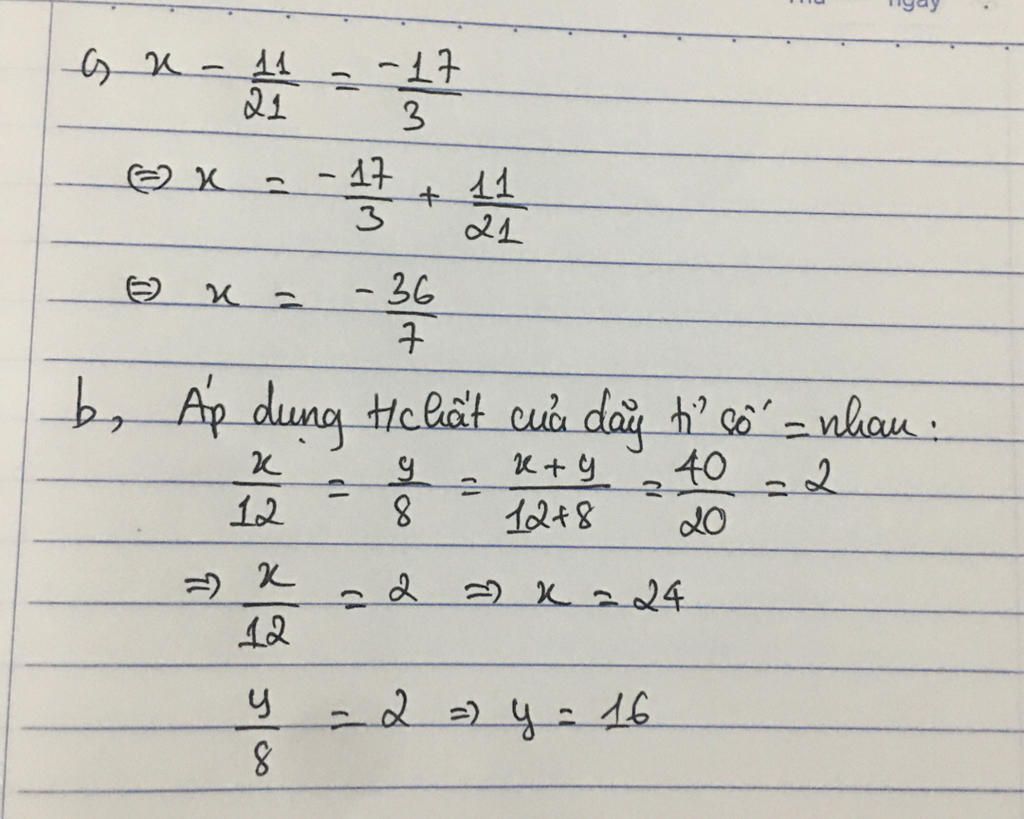 ngày
a, x - 11/21 = -17/3
⇔ x = -17/3 + 11/21
⇔ x = -36/7
b, Áp dụng t/chất của dãy tỉ số = nhau:
x/12 = y/8 = x+y/12+8 = 40/20 = 2
⇒ x/12 = 2 ⇒ x = 24
y/8 = 2 ⇒ y = 16